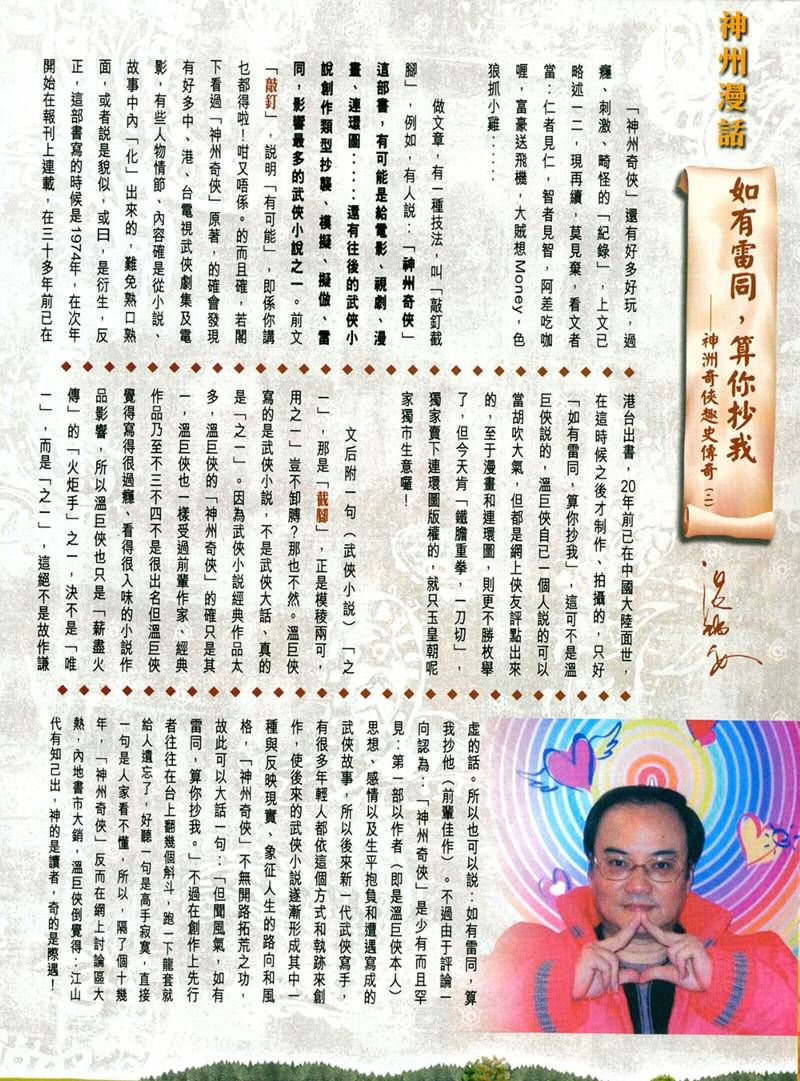 神州漫話
如有雷同，算你抄我
——神洲奇俠趣史傳奇（二）
「神州奇俠」還有好多好玩，過
癮、刺激、畸怪的「紀錄」，上文已
略述一二，現再續，莫見棄，看文者
當：仁者見仁，智者見智，阿差吃咖
喱，富豪送飛機，大賊想Money，色
狼抓小雞：：：：
做文章，有一種技法，叫「敲釘截
腳」，例如，有人說：「神州奇俠」
這部書，有可能是給電影、視劇、漫
畫、連環圖：：：：還有往後的武俠小
說創作類型抄襲、模擬、擬倣、雷
同，影響最多的武俠小說之一。前文
「敲釘」，說明「有可能」，即係你講
乜都得啦！咁又唔係。的而且確，若閣
下看過「神州奇俠」原著，的確會發現
有好多中、港、台電視武俠劇集及電
影，有些人物情節、內容確是從小說、
故事中內「化」出來的，難免熟口熟
面，或者說是貌似，或曰，是衍生，反
正，這部書寫的時候是1974年，在次年
開始在報刊上連載，在三十多年前已在
港台出書，20年前已在中國大陸面世，
在這時候之後才制作、拍攝的，只好
「如有雷同，算你抄我」，這可不是溫
巨俠說的，溫巨俠自己一個人說的可以
當胡吹大氣，但都是網上俠友評點出來
的，至于漫畫和連環圖，則更不勝枚舉
了，但今天肯「鐵膽重拳，一刀切」，
獨家賣下連環圖版權的，就只玉皇朝呢
家獨市生意囉！
文后附一句（武俠小說）「之
一」，那是「截腳」，正是模稜兩可，
用之一」豈不卸膊？那也不然。溫巨俠
寫的是武俠小說，不是武俠大話、真的
是「之一」。因為武俠小說經典作品太
多，溫巨俠的「神州奇俠」的確只是其
一，溫巨俠也一樣受過前輩作家、經典
作品乃至不三不四不是很出名但溫巨俠
覺得寫得很過癮、看得很入味的小說作
品影響，所以溫巨俠也只是「薪盡火
傳」的「火炬手」之一，決不是「唯
一」，而是「之一」，這絕不是故作謙
虛的話。所以也可以說：如有雷同，算
我抄他（前輩佳作）。不過由于評論一
向認為：「神州奇俠」是少有而且罕
見：第一部以作者（即是溫巨俠本人）
思想、感情以及生平抱負和遭遇寫成的
武俠故事，所以後來新一代武俠寫手，
有很多年輕人都依這個方式和軌跡來創
作，使後來的武俠小說逐漸形成其中一
種與反映現實、象征人生的路向和風
格，「神州奇俠」不無開路拓荒之功，
故此可以大話一句：「但聞風氣，如有
雷同，算你抄我。」不過在創作上先行
者往往在台上翻幾個斛斗，跑一下龍套就
給人遺忘了，好聽一句是高手寂寞，直接
一句是人家看不懂，所以，隔了個十幾
年，「神州奇俠」反而在網上討論區大
熱，內地書市大銷，溫巨俠倒覺得：江山
代有知己出，神的是讀者，奇的是際遇！